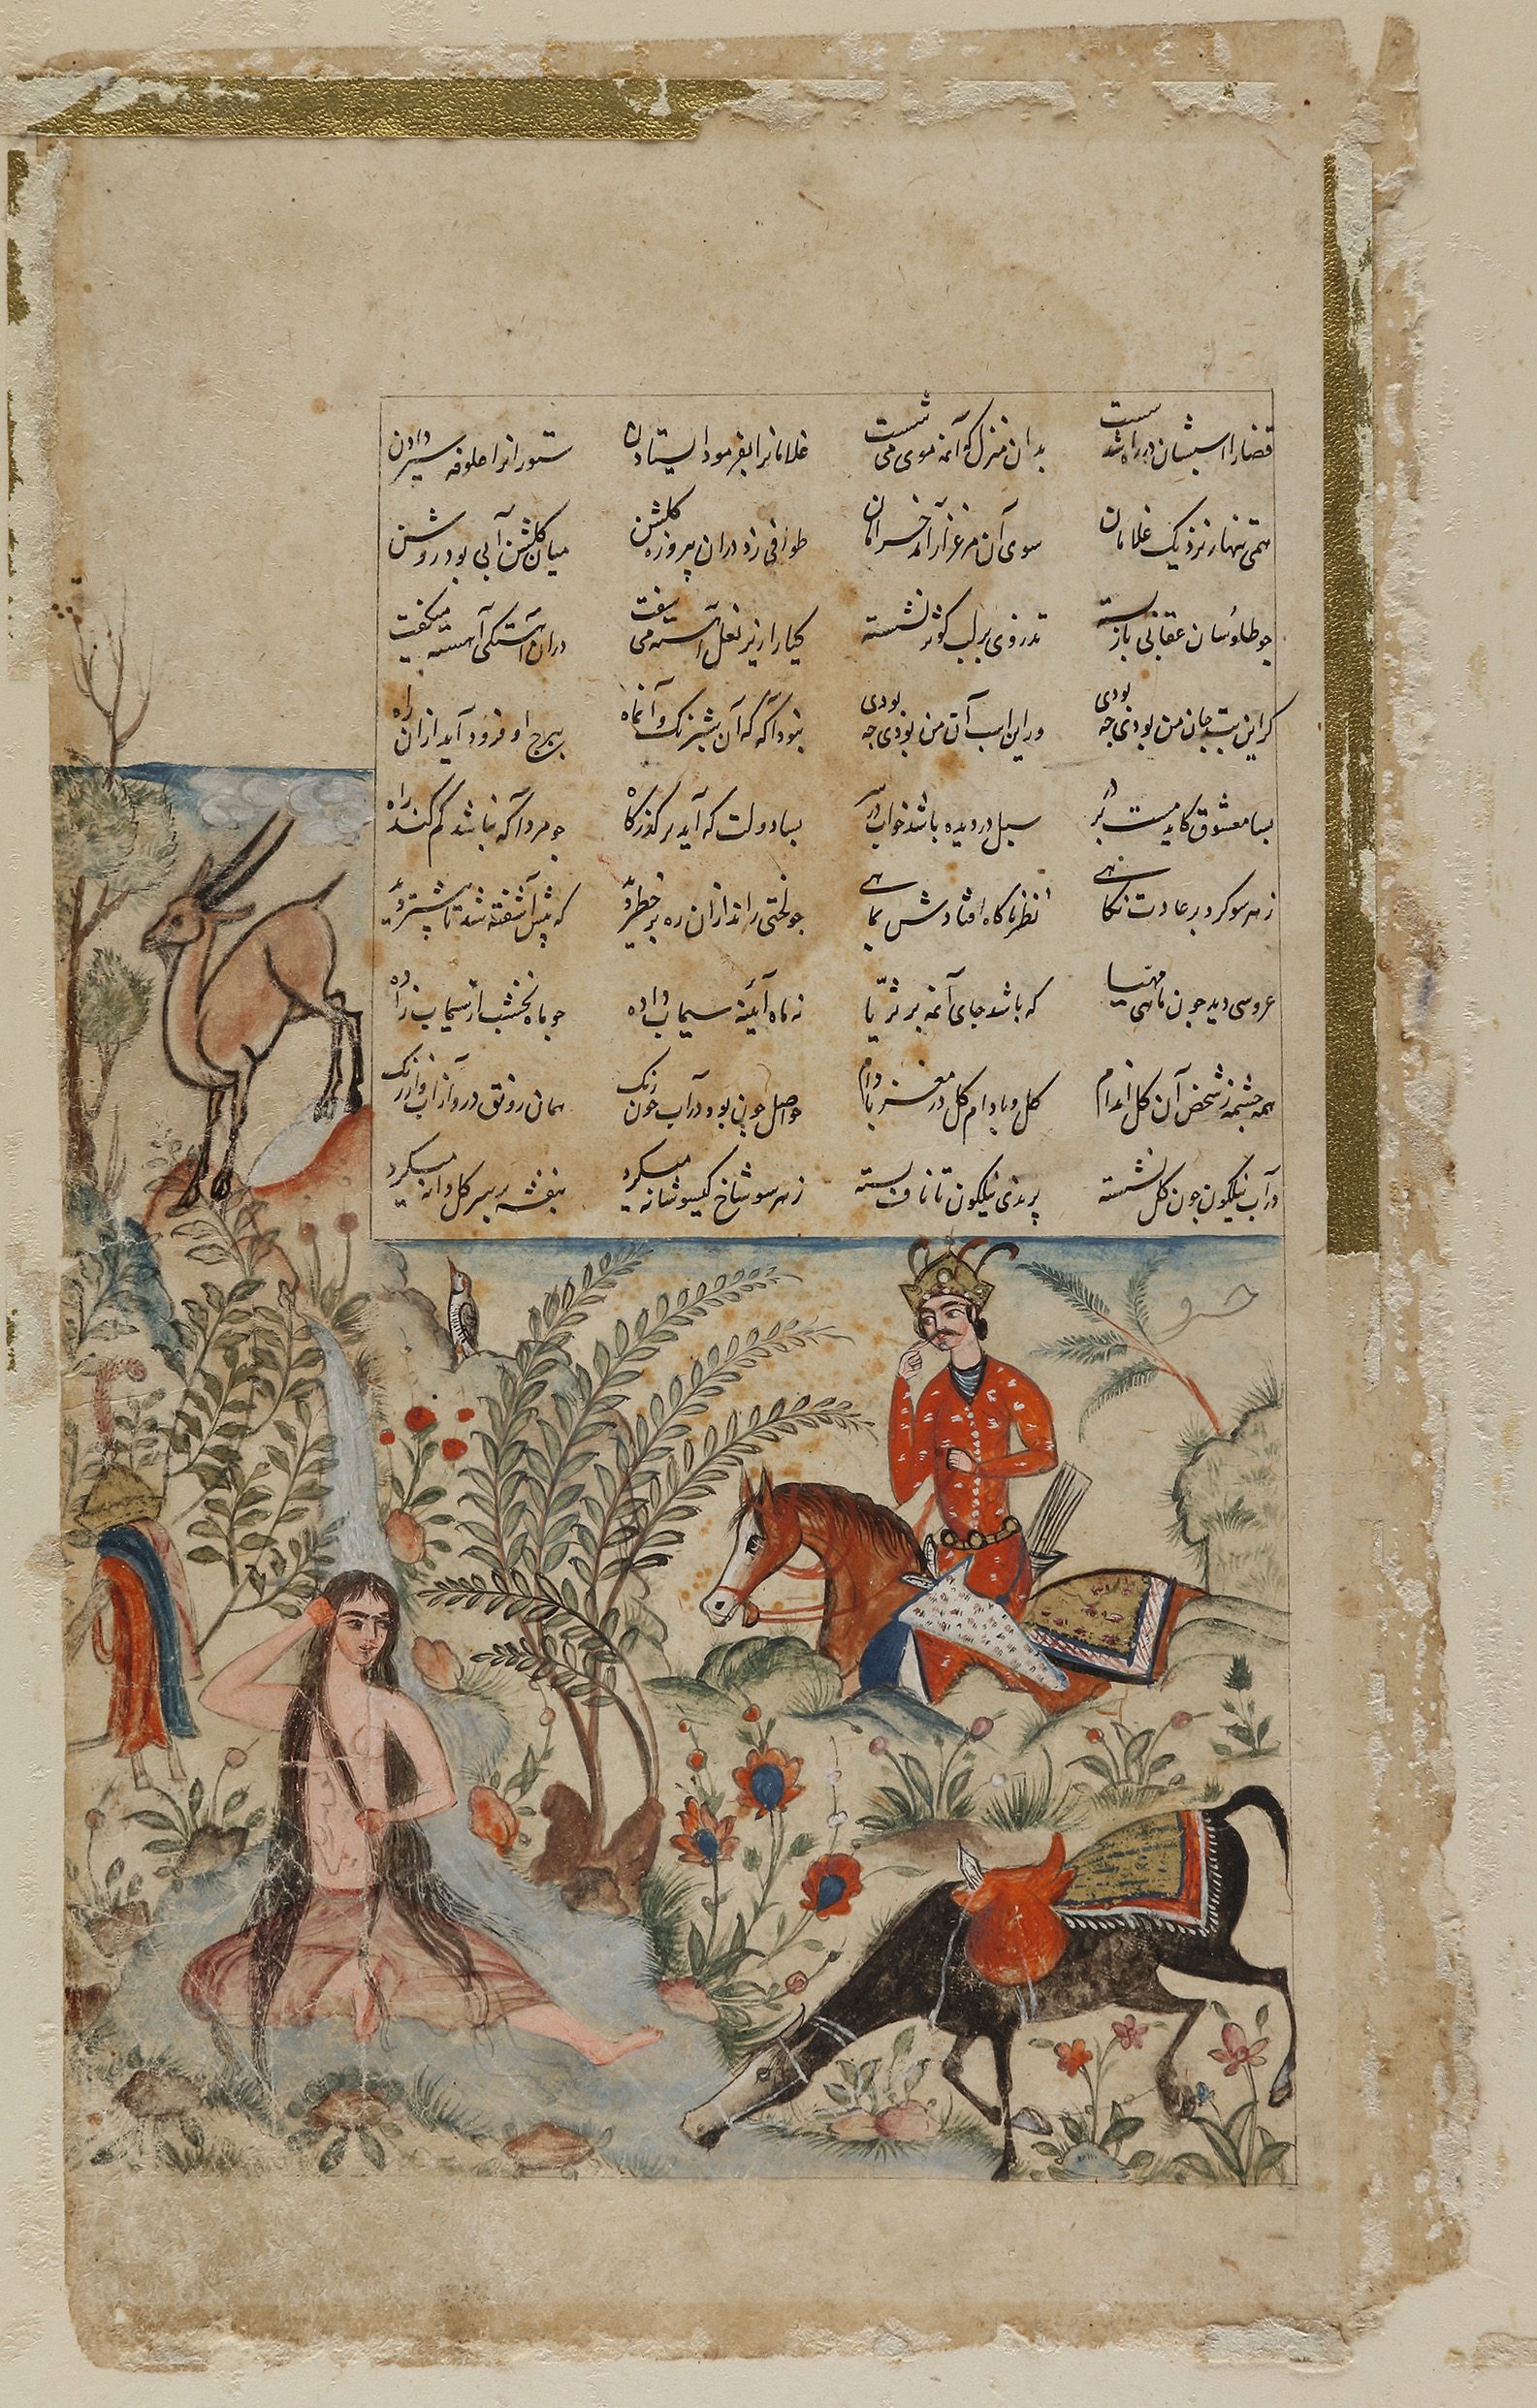 قضا را اسبشان در راه شد سست بدان منزل که آنمه موی می شست غلامانرا بفرمود ایستادن ستورانرا علوفه سیر دادن
همی تنها ز نزدیک غلامان سوی آن مرغزار آمد خرامان طوافی زد دران پیروزه کلشن میان کلشن آبی بود روشن
جو طاوسان عقابی باز بسته تذروی بر لب کوثر نشسته کیا را زیر نعل آهسته می سفت دران آهستکی آهسته میکفت
کر این بت جان من بودی جه بودی ور این اسب آن من بودی جه بودی نبود آکه که آن شبرنک و آنماه ببرج او فرود آید ازان راه
بسا معشوق کاید مست بر در سبل در دیده باشد خواب در سر بسا دولت که آید بر کذرکاه جو مرد آکه نباشد کم کند راه
ز هر سو کرد بر عادت نکاهی نظر ناکاه افتادش بماهی جو لختی راند ازان ره بر خطر دید که بیش آشفته شد تا پیشتر دید
عروسی دید جون ماهی مهیا که باشد جای آنمه بر ثریا نه ماه آیینه سیماب داده جو ماه نخشب از سیماب زاده
همه جشمه ز شخص آن کل اندام کل و بادام کل در مغز بادام حواصل جون بود در آب جون رنک همان رونق درو از آب و از رنک
در آب نیلکون جون کل نشسته پرندی نیلکون تا ناف بسته ز هر سو شاخ کیسو شانه میکرد بنفشه بر سر کل دانه میکرد
خسرو